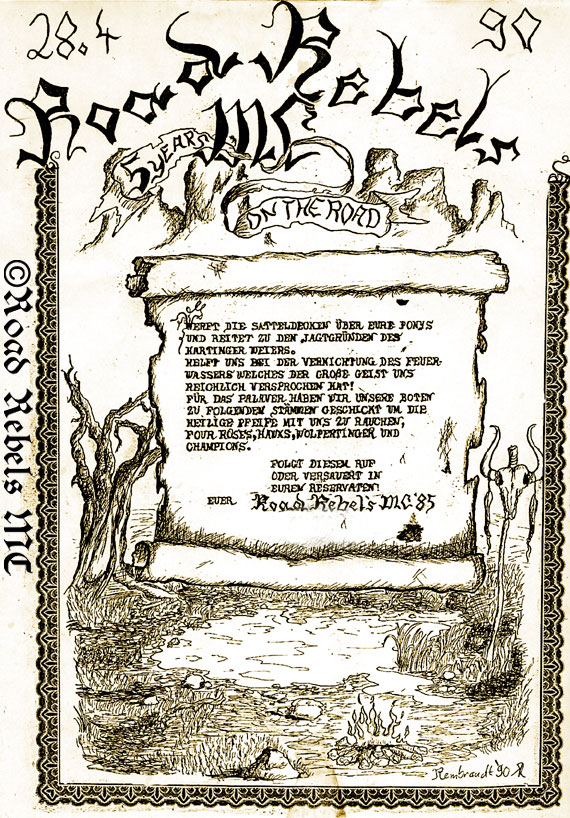 28.4 90
Road Rebels
MC
5 YEARS
ON THE ROAD
WERFT DIE SATTELDECKEN ÜBER EURE PONYS
UND REITET ZU DEN JAGTGRÜNDEN DES
HARTINGER WEIERS.
HELFT UNS BEI DER VERNICHTUNG DES FEUER-
WASSERS WELCHES DER GROßE GEIST UNS
REICHLICH VERSPROCHEN HAT!
FÜR DAS PALAVER HABEN WIR UNSERE BOTEN
ZU FOLGENDEN STÄMMEN GESCHICKT UM DIE
HEILIGE PFEIFE MIT UNS ZU RAUCHEN,
FOUR ROSES, HAWKS, WOLPERTINGER UND
CHAMPIONS.
FOLGT DIESEM RUF
ODER VERSAUERT IN
EUREM RESERVATEN!
EUER Road Rebels MC '85
Rembrandt '90 R
©Road Rebels MC